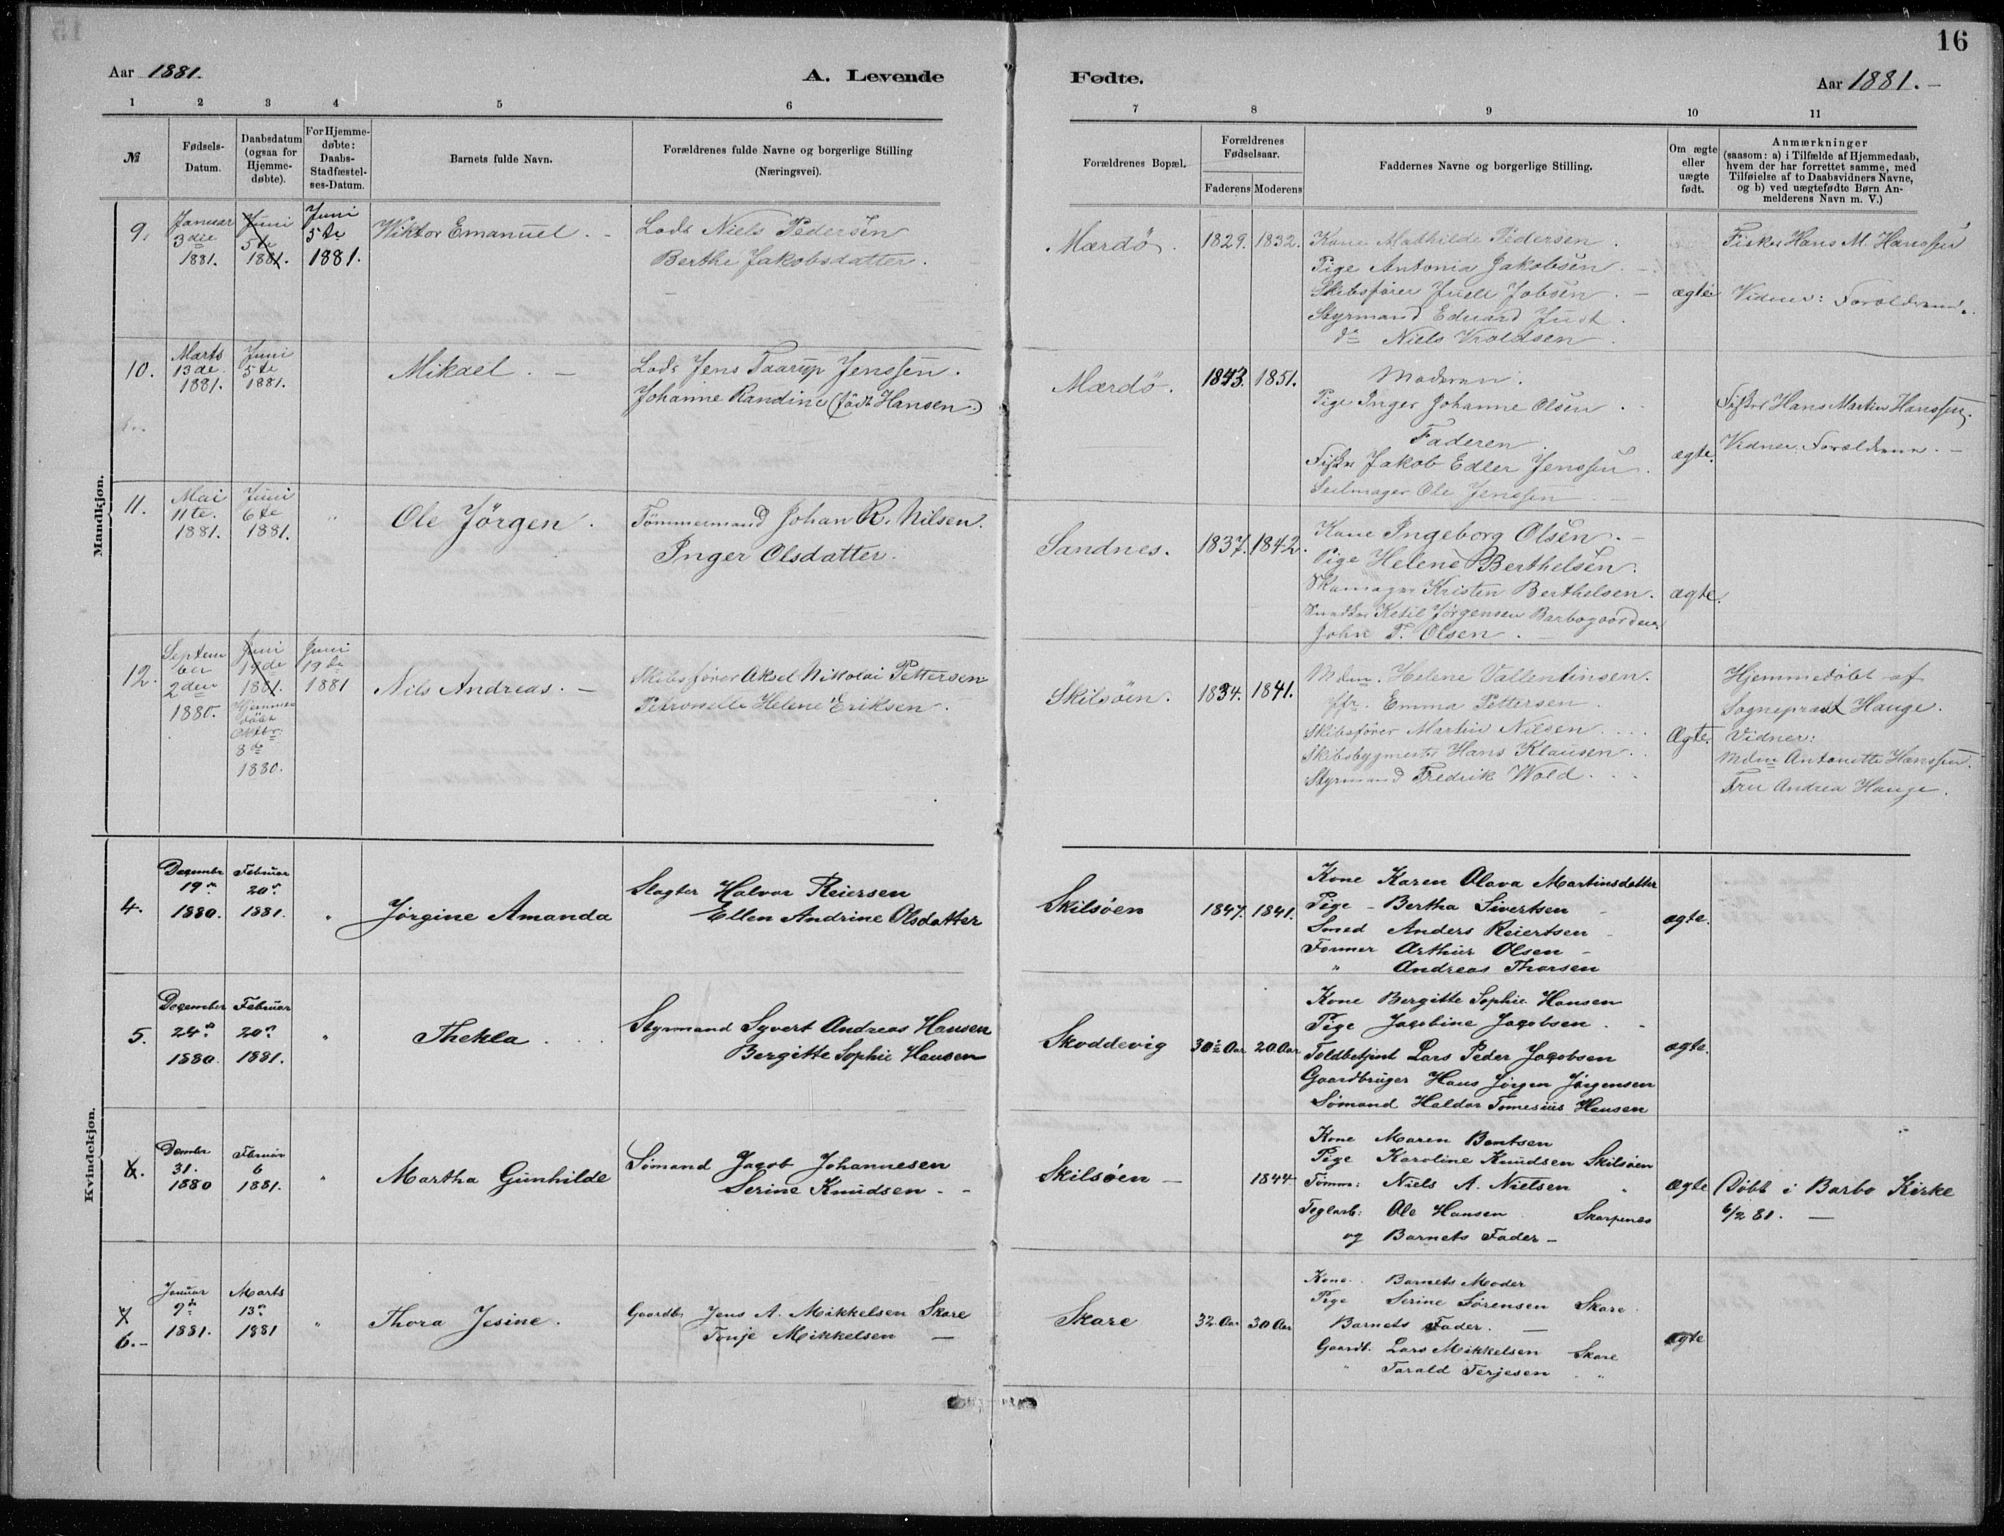 16
Aar 1881.
A. Levende
Fødte.
Aar 1881. —
1 2 3 4 5 6 7 8 9 10 11
№
Fødsels-
Datum.
Daabsdatum
(ogsaa for
Hjemme-
døbte).
For Hjemme-
døbte:
Daabs-
Stadfæstel-
ses-Datum.
Barnets fulde Navn.
Forældrenes fulde Navne og borgerlige Stilling
(Næringsvei).
Forældrenes Bopæl.
Forældrenes
Fødselsaar.
Faderens Moderens
Faddernes Navne og borgerlige Stilling.
Om ægte
eller
uægte
født.
Anmærkninger
(saasom: a) i Tilfælde af Hjemmedaab,
hvem der har forrettet samme, med
Tilføielse af to Daabsvidners Navne,
og b) ved uægtefødte Børn An-
melderens Navn m. V.)
Mandkjøn.
9.
Januar
3die
1881.
Juni
5te
1881.
Juni
5te
1881.
Wiktor Emanuel. —
Lods Niels Pedersen
Berthe Jakobsdatter.
Mærdö.
1829. 1832.
Kone Mathilde Pedersen.
Pige Antonia Jakobsen. —
Skibsfører Juell Jobsen. —
Styrmand Eduard Just.
do Niels Kroldsen.
ægte
Fisker Hans M. Hanssen
Vidner: Forældrene.
10.
Marts
13de
1881.
Juni
5te
1881.
Mikael. —
Lods Jens Taarup Jenssen.
Johanne Randine (født Hansen.)
Mærdö.
1843. 1851.
Moderen.
Pige Inger Johanne Olsen.
Faderen.
Fisker Jakob Edler Jenssen.
Seilmager Ole Jenssen.
ægte.
Fisker Hans Martin Hanssen.
Vidner, Forældrene. —
11.
Mai
11te.
1881.
Juni
6te
1881.
"
Ole Jörgen.
Tömmermand Johan R. Nilsen.
Inger Olsdatter.
Sandnes.
1837. 1842.
Kone Ingeborg Olsen. —
Pige Helene Berthelsen.
Skomager Kristen Berthelsen.
Snedker Ketil Jørgensen Barbogaarden.
John T. Olsen. —
ægte.
12.
Septem
ber
2den
1880.
Juni
19de
1881.
Hjemme
døbt
Oktbr.
3de
1880.
Juni
19de
1881
Nils Andreas. —
Skibsfører Aksel Nikolai Pettersen
Petronelle Helene Eriksen.
Skilsöen.
1834. 1841.
Mdm. Helene Vallentinsen.
Jfr. Emma Pettersen.
Skibsfører Martin Nilsen....
Skibsbygmester Hans Klausen.
Styrmand Fredrik Wold....
Ægte.
Hjemmedøbt af
Sognepræst Hauge.
Vidner:
Mdm Antonette Hanssen.
Fru Andrea Hauge.
Kvindekjøn.
4.
Decembr
19de
1880.
Februar
20de
1881.
"
Jørgine Amanda
Slagter Halvor Reiersen
Ellen Andrine Olsdatter
Skilsöen
1847. 1841.
Kone Karen Olava Martinsdatter
Pige Bertha Sivertsen
Smed Anders Reiertsen
Former Arthur Olsen —
" Andreas Thorsen
ægte.
5.
December
24de
1880.
Februar
20de
1881.
"
Thekla
Styrmand Syvert Andreas Hansen
Bergitte Sophie Hansen
Skoddevig
30te Aar 20 Aar
Kone Bergitte Sophie Hansen
Pige Jacobine Jacobsen
Toldbetjent Lars Peder Jacobsen
Gaardbruger Hans Jörgen Jörgensen
Sømand Haldor Tomesius Hansen
ægte.
6.
Dcember
31.
1880
Februar
6
1881.
"
Martha Gunhilde
Sømand Jacob Johannesen
Serine Knudsen —
Skilsöen —
1844
Kone Maren Bentsen
Pige Karoline Knudsen Skilsöen
Tømm: Niels A. Nielsen "
Teglarb: Ole Hansen Skarpenes
og Barnets Fader —
ægte
Døbt i Barbo Kirke
6/2 81. —
6. —
Januar
9de
1881.
Marts
13de
1881
"
Thora Jesine.
Gaardb. Jens A. Mikkelsen Skare
Tonje Mikkelsen —
Skare
32 Aar 30 Aar
Kone. Barnets Moder
Pige Serine Sørensen Skare
Barnets Fader. —
Gaardb. Lars Mikkelsen Skare
" Tarald Terjesen "
ægte